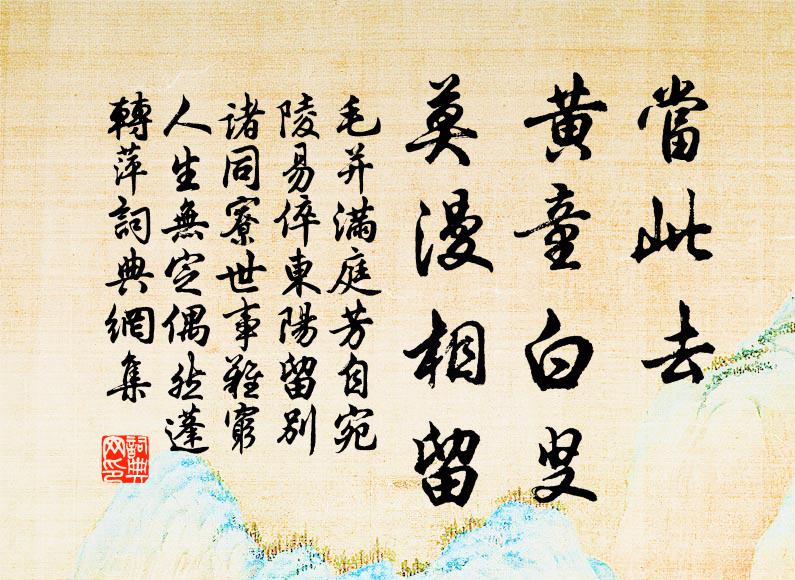 當此去
黃童白叟
莫漫相留
毛幷滿庭芳自宛
陵易倅東陽留別
諸同寮世事難窮
人生無定偶然蓬
轉萍詞典網集
詞典网印